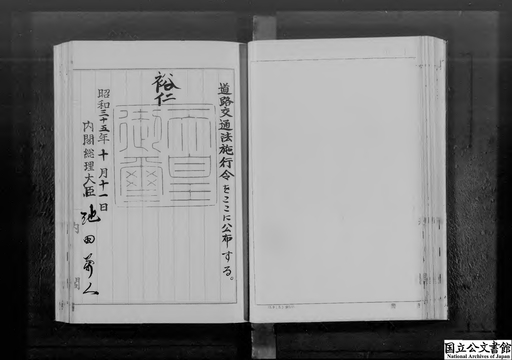 道路交通法施行令をここに公布する。
裕仁
天皇御璽
昭和三十五年十月十一日
内閣総理大臣 池田勇人
国立公文書館
National Archives of Japan